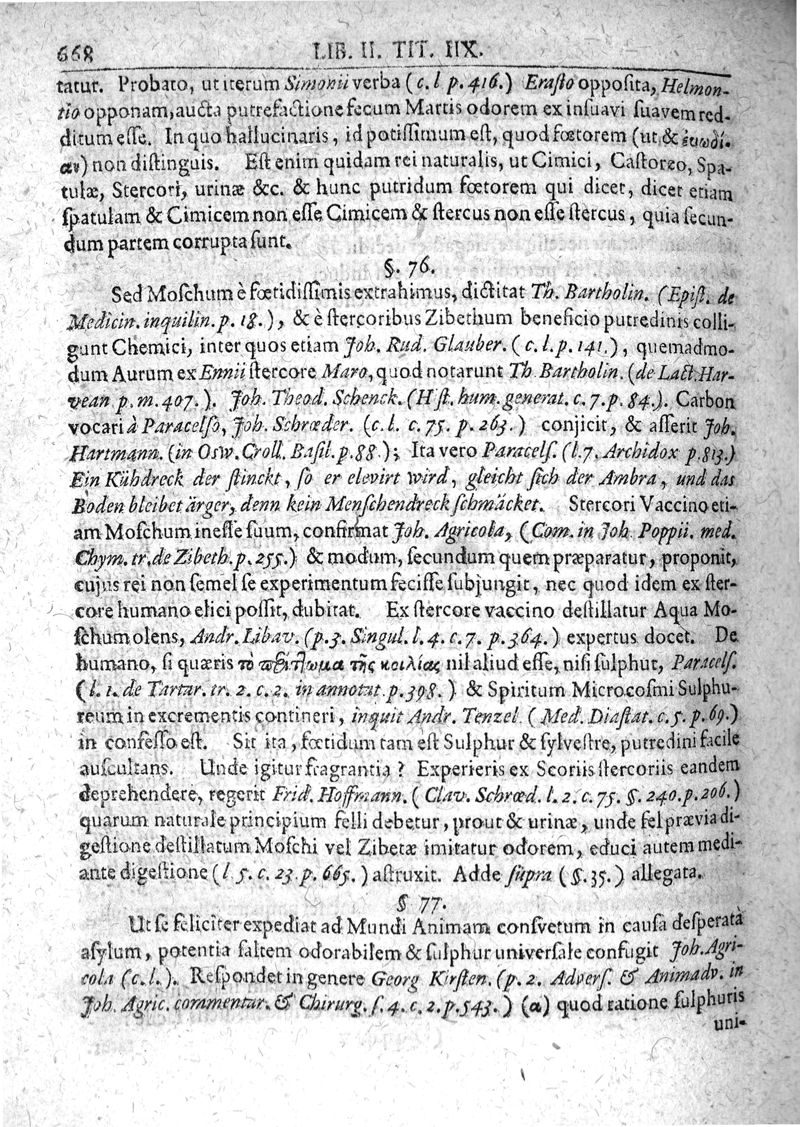 668 LIB. II. TIT. IIX.
tatur. Probato, ut iterum Simonii verba (c. l p. 416.) Erasto opposita, Helmon-
tio opponam, aucta putrefactione fecum Martis odorem ex insuavi suavem red-
ditum esse. In quo hallucinaris, id potissimum est, quod fœtorem (ut & ἐυωδί-
αν) non distinguis. Est enim quidam rei naturalis, ut Cimici, Castoreo, Spa-
tulæ, Stercori, urinæ &c. & hunc putridum fœtorem qui dicet, dicet etiam
spatulam & Cimicem non esse Cimicem & stercus non esse stercus, quia secun-
dum partem corrupta sunt.
§. 76.
Sed Moschum è fœtidissimis extrahimus, dictitat Th. Bartholin. (Epist. de
Medicin. inquilin. p. 18.), & è stercoribus Zibethum beneficio putredinis colli-
gunt Chemici, inter quos etiam Joh. Rud. Glauber. (c. l. p. 141.), quemadmo-
dum Aurum ex Ennii stercore Maro, quod notarunt Th. Bartholin. (de Lact. Har-
vean p. m. 407.). Joh. Theod. Schenck. (Hist. hum. generat. c. 7. p. 84.). Carbon
vocari à Paracelso, Joh. Schrœder. (c. l. c. 75. p. 263.) conjicit, & asserit Joh.
Hartmann. (in Osw. Croll. Basil. p. 88.); Ita vero Paracels. (l. 7. Archidox p. 813.)
Ein Kühdreck der stinckt, so er elevirt wird, gleicht sich der Ambra, und das
Boden bleibet ärger, denn kein Menschendreck schmäcket. Stercori Vaccino eti-
am Moschum inesse suum, confirmat Joh. Agricola, (Com. in Joh Poppii. med.
Chym. tr. de Zibeth. p. 255.) & modum, secundum quem præparatur, proponit,
cujus rei non semel se experimentum fecisse subjungit, nec quod idem ex ster-
core humano elici possit, dubitat. Ex stercore vaccino destillatur Aqua Mo-
schum olens, Andr. Libav. (p. 3. Singul. l. 4. c. 7. p. 364.) expertus docet. De
humano, si quæris τὸ της κοιλίας nil aliud esse, nisi sulphur, Paracels.
(l. 1. de Tartar. tr. 2. c. 2. in annotat p. 398.) & Spiritum Microcosmi Sulphu-
reum in excrementis contineri, inquit Andr. Tenzel. (Med. Diastat. c. 5. p. 69.)
in confesso est. Sit ita, fœtidum tam est Sulphur & sylvestre, putredini facile
auscultans. Unde igitur fragrantia? Experieris ex Scoriis stercoriis eandem
deprehendere, regerit Frid. Hoffmann. (Clav. Schrœd. l. 2. c. 75. §. 240. p. 206.)
quarum naturale principium felli debetur, prout & urinæ, unde fel prævia di-
gestione destillatum Moschi vel Zibetæ imitatur odorem, educi autem medi-
ante digestione (l 5. c. 23. p. 665.) astruxit. Adde supra (§. 35.) allegata.
§ 77.
Ut se feliciter expediat ad Mundi Animam consvetum in causa desperata
asylum, potentia saltem odorabilem & sulphur universale confugit Joh. Agri-
cola (c. l.). Respondet in genere Georg Kirsten. (p. 2. Advers. & Animadv. in
Joh. Agric. commentar. & Chirurg. f. 4. c. 2. p. 543.) (α) quod ratione sulphuris
uni-